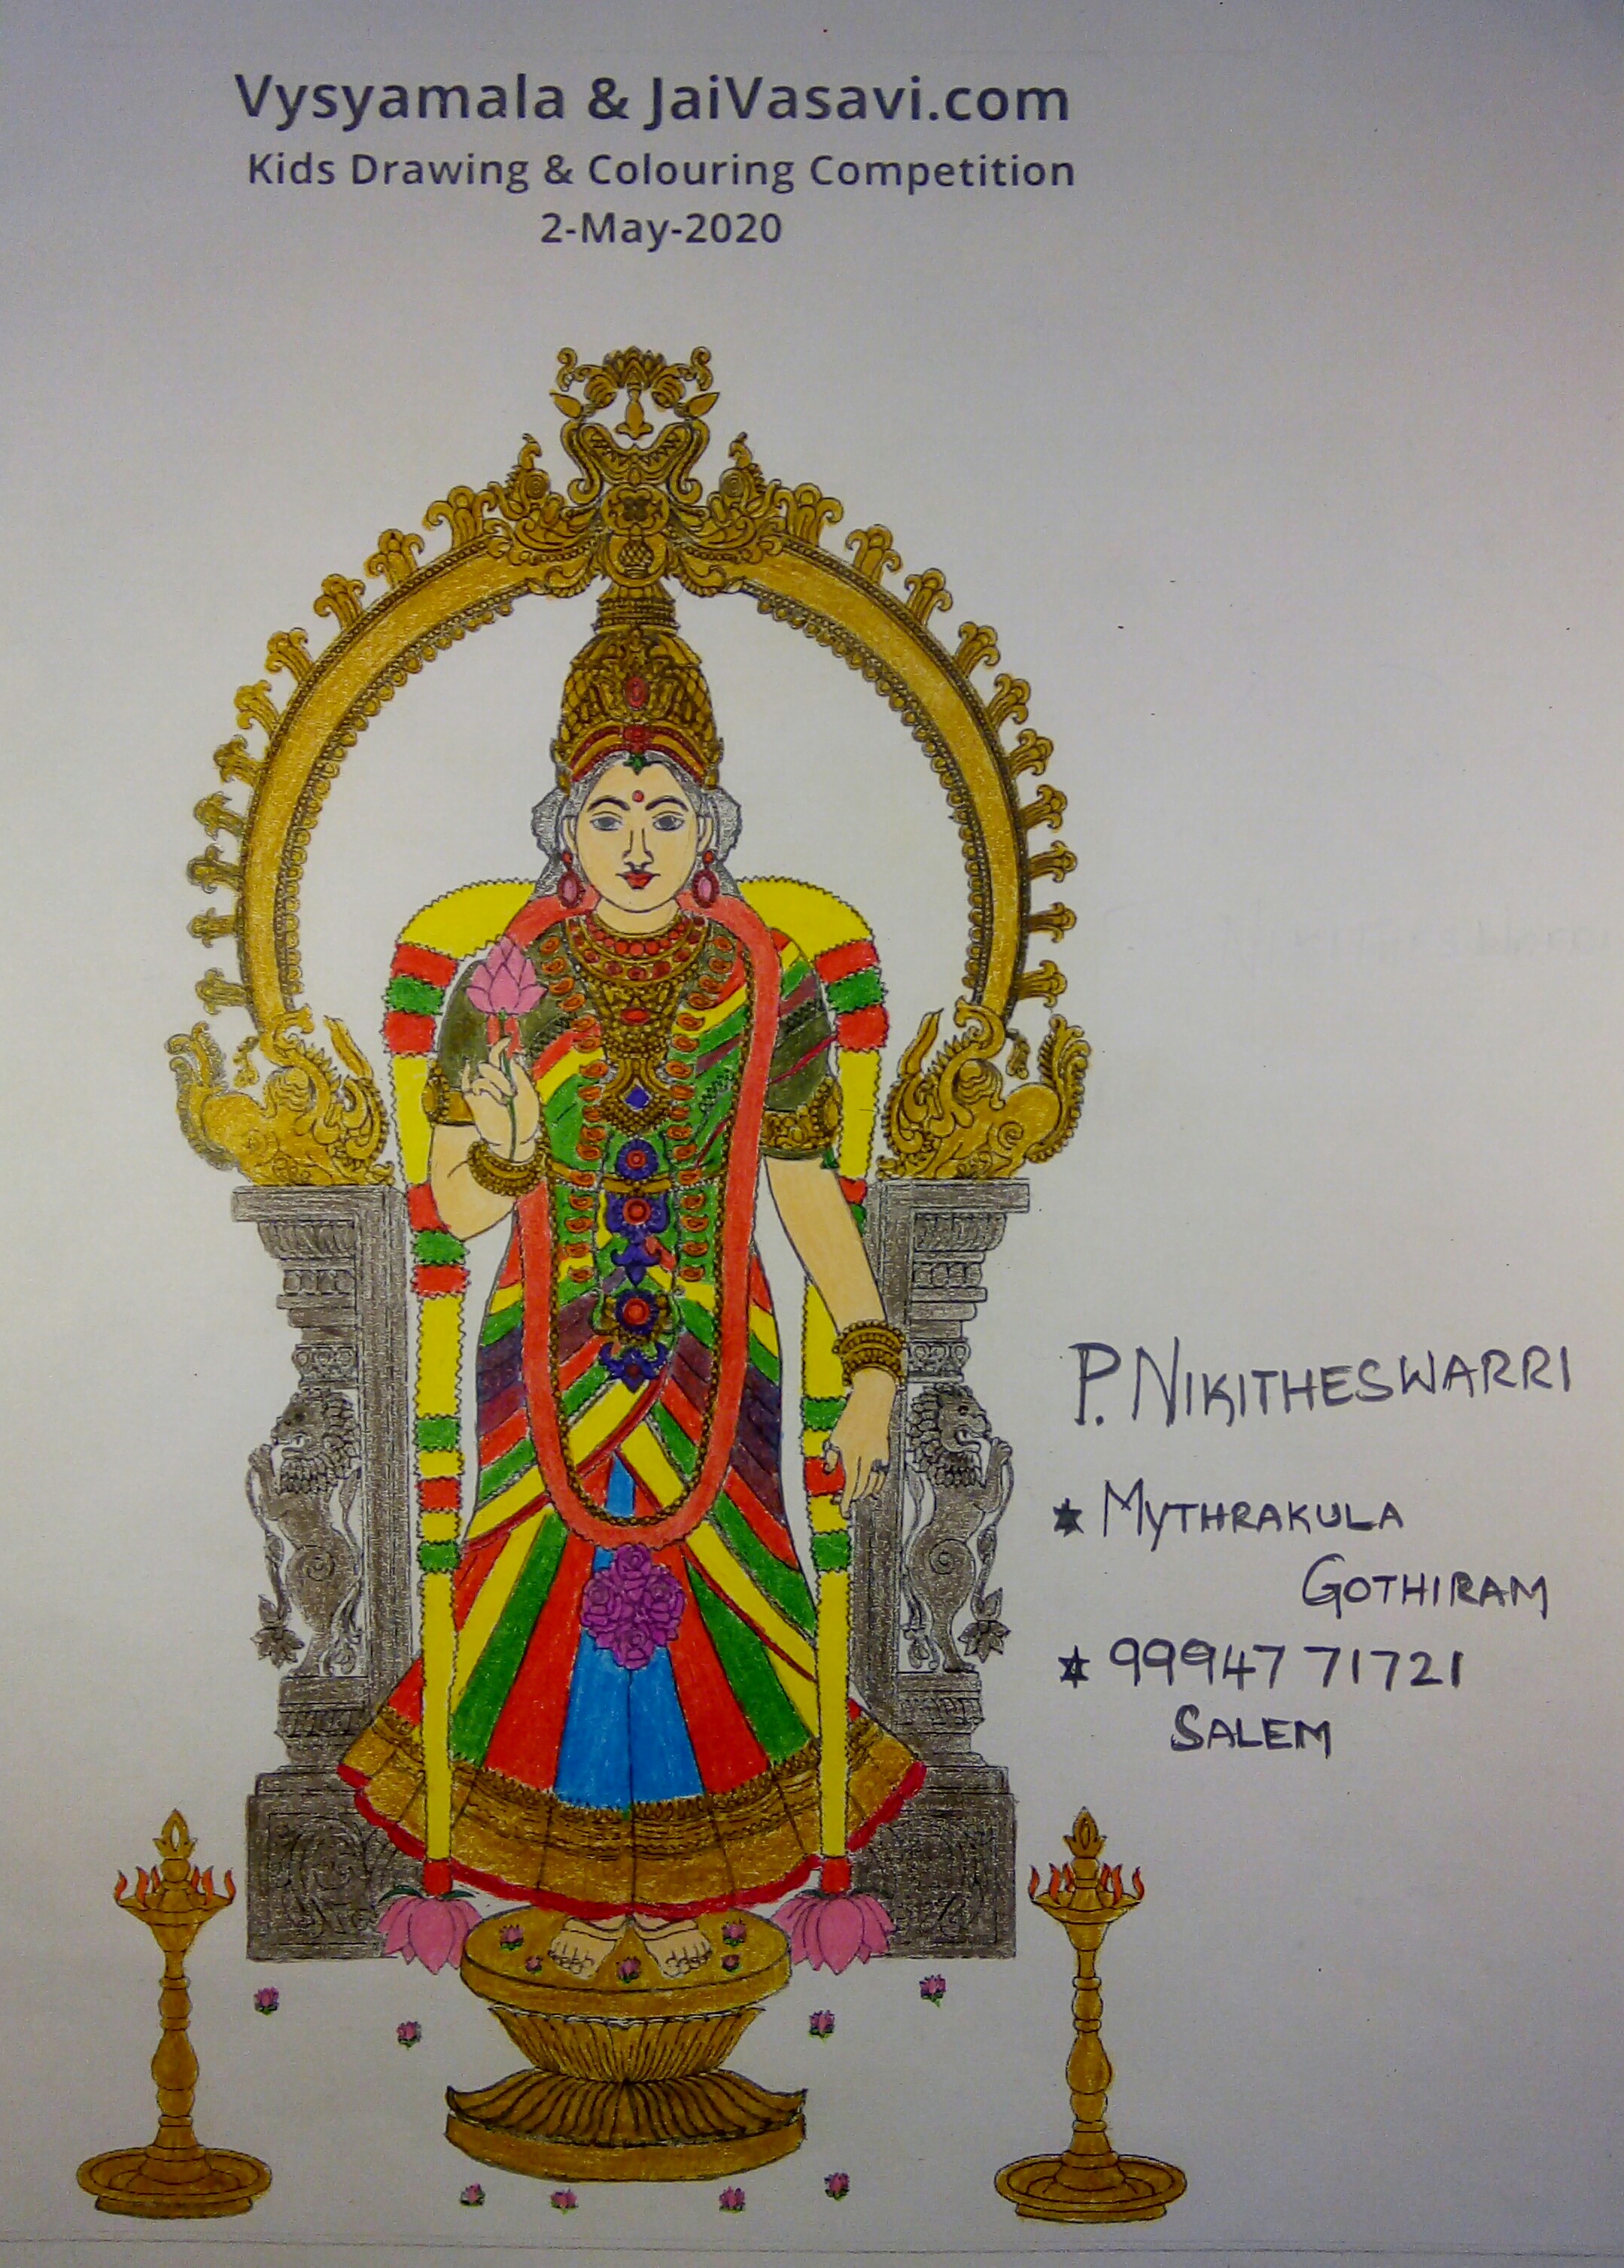 Vysyamala & JaiVasavi.com
Kids Drawing & Colouring Competition
2-May-2020
P. NIKITHESWARRI
★ MYTHRAKULA
GOTHIRAM
★ 99947 71721
SALEM